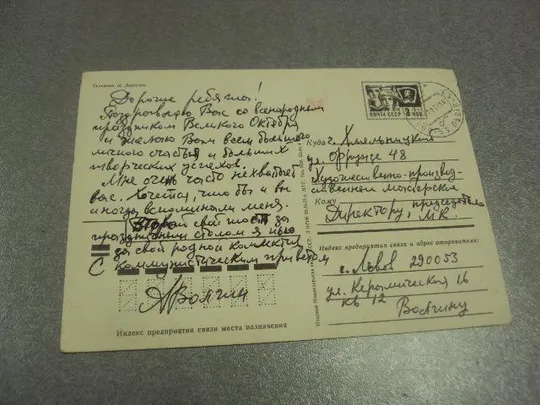 Дорогие ребята!
Поздравляю Вас со всенародным
праздником Великого Октября
и желаю Вам всем большого
личного счастья и больших
творческих успехов.
Мне очень часто не хватает
вас. Хочется, чтобы и вы
иногда вспоминали меня.
Второй свой тост за
праздничным столом я пью
за свой родной коллектив
С коммунистическим приветом
АВолчин
Индекс предприятия связи места назначения
ПОЧТА СССР
Куда г. Хмельницкий
ул. Фрунзе 48
Художественно-производ-
ственная мастерская
Кому председателю
Директору, М.К.
Индекс предприятия связи и адрес отправителя:
г. Львов 290053
ул. Керамическая 16
кв 12
Волчину